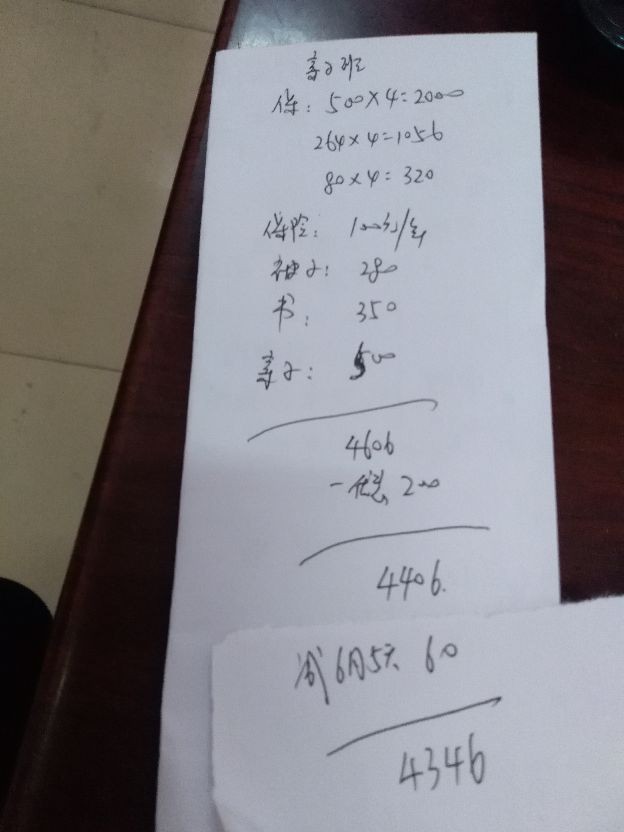 亲子班
保：500×4=2000
264×4=1056
80×4=320
保险：100元/年
被子：280
书：350
亲子：500
4606
-优惠 200
4406.
减6月5天 60
4346